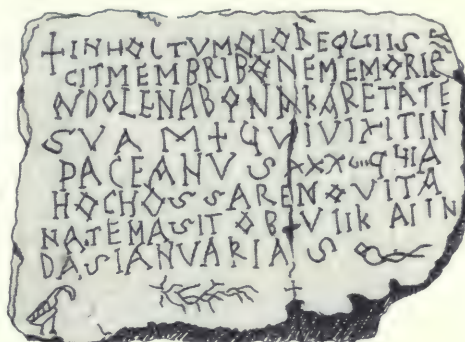 + INHOCTVMOLOREQUIIS
CITMEMBRIBONEMEMORIE
AVDOLENABONAKARETATE
SVA M+QVIVIXITIN
PACEANVS XXX
HOCHOSSAREMOVITA
NATEMASIT OB VIIKALIN
DASIANVARIAS